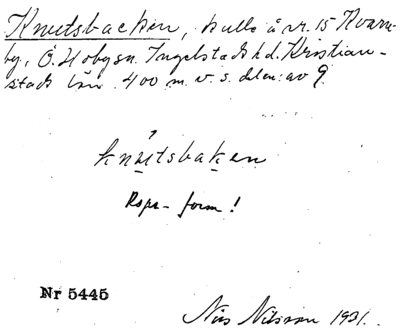 Knutsbacken, kulle å nr. 15 Kvarn-
by, Ö. Hoby sn. Ingelstads hd. Kristian-
stads län. 400 m. v. s. delen av 9.
knu̱tsbaḵen
Rspr-form!
Nr 5445
Nils Nilsson 1931.